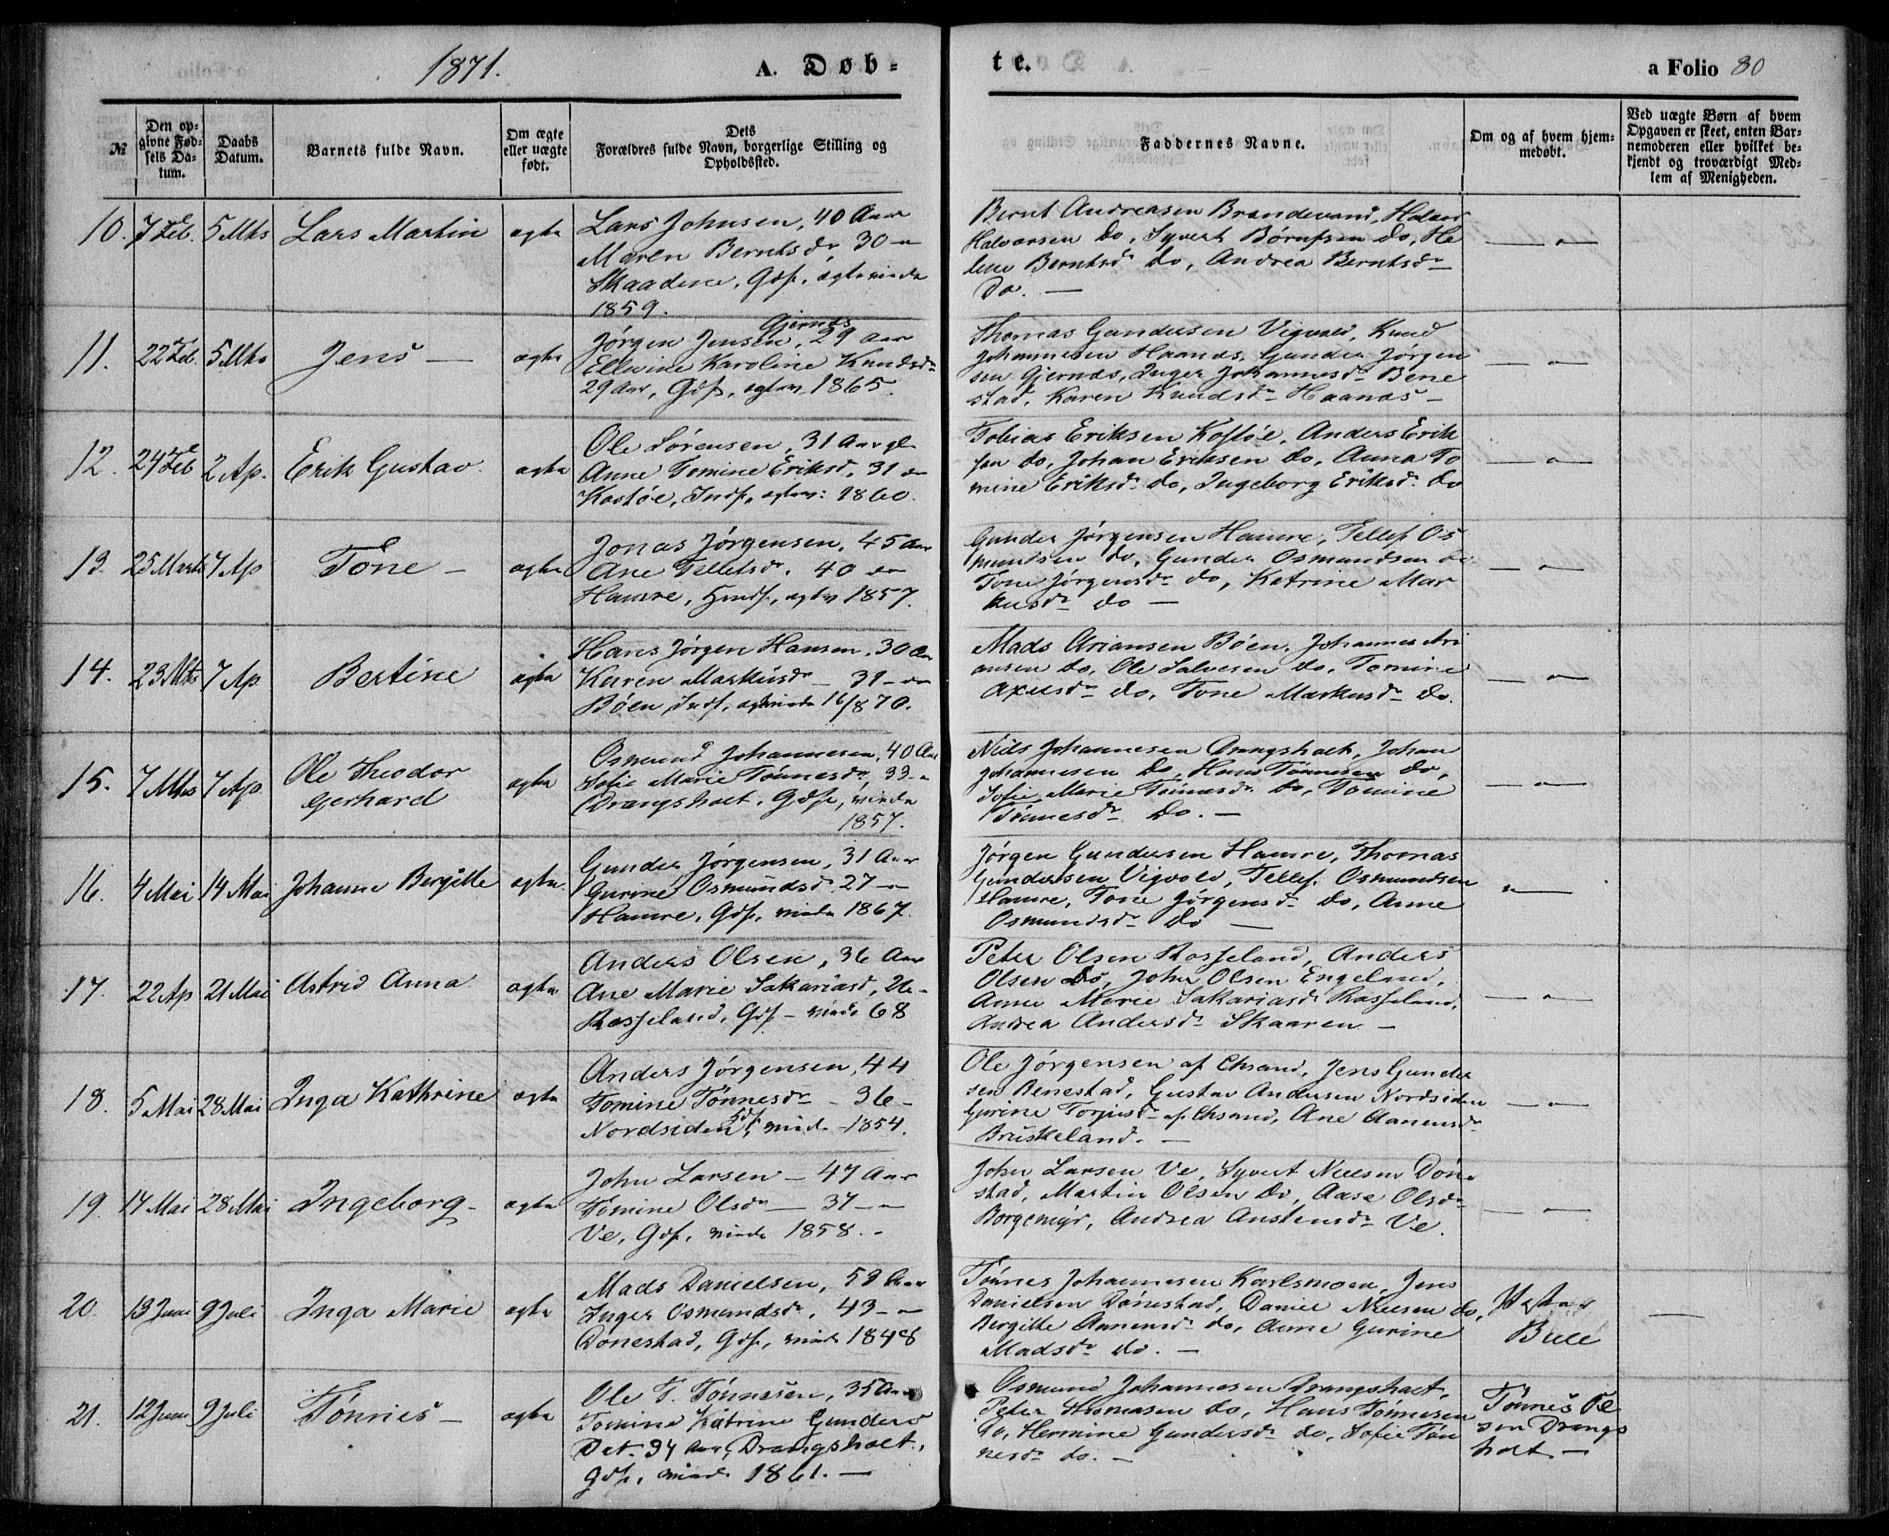 1871.
A. Døb-
te.
a Folio 80
№
Den op-
givne Fød-
sels Da-
tum.
Daabs
Datum.
Barnets fulde Navn.
Om ægte
eller uægte
født.
Dets
Forældres fulde Navn, borgerlige Stilling og
Opholdssted.
Faddernes Navne.
Om og af hvem hjem-
medøbt.
Ved uægte Børn af hvem
Opgaven er skeet, enten Bar-
nemoderen eller hvilket be-
kjendt og troværdigt Med-
lem af Menigheden.
10. 7 Feb. 5 Mts Lars Martin ægte
Lars Johnsen, 40 Aar
Maren Berntsdr 30 –
Skaadene, Gdf,
1859.
Bernt Andreasen Brandevand, Halvor
Halvorsen do, Syvert do, He
lene Berntsdr do, Andrea Berntsdr
Do. –
11. 22 Feb. 5 Mts Jens – ægte
Gjernæs
Jørgen Jensen, 29 Aar
Ellevine Karoline Knudsdr
29 Aar, Gdf, 1865.
Thomas Gundersen Vigvold, Knud
Johannesen Haanæs, Gunder Jørgen
sen Gjernæs, Inger Johannesdr Bene
stad, Karen Knudsdr Haanæs –
12. 24 Feb 2 Ap. Erik Gustav. ægte
Ole Sørensen, 31 Aar gl
Anne Tomine Eriksd, 31 –
Kostøe, Indf, 1860.
Tobias Eriksen Kostøe, Anders Erik
sen do, Johan Eriksen do, Anna To
mine Eriksdr do, Ingeborg Eriksdr do
13. 25 Marts 7 Ap Tone – ægte
Jonas Jørgensen, 45 Aar
Ane Tellefsdr. 40 –
Hamre, 1857.
Gunder Jørgensen Hamre, Tellef Os
mundsen do, Gunder Osmundsen do
Tone Jørgensdr do, Katrine Mar
kusdr do –
14. 23 Mts 7 Ap Bertine ægte
Hans Jørgen Hansen, 30 Aar
Karen Markusdr – 31 –
Bøen, Indf, 16/8 70.
Mads Ariansen Bøen, Johannes Ari
ansen do, Ole Salvesen do, Tomine
Axelsdr do, Tone Markusdr do.
15. 7 Mts 7 Ap Ole Theodor
Gerhard ægte
Osmund Johannesen, 40 Aar
Sofie Marie Tønnesdr, 33 –
Drangsholt, Gdf, viede
1857.
Niels Johannesen Drangsholt, Johan
Johannesen do, Hans Tønnesen do,
Sofie Marie Tønnesdr do, Tomine
Tønnesdr. Do. –
16. 4 Mai 14 Mai Johanne Bergitte ægte.
Gunder Jørgensen, 31 Aar
Gurine Osmundsdr. 27 –
Hamre, Gdf, viede 1867.
Jørgen Gundersen Hamre, Thomas
Gundersen Vigvold, Tellef. Osmundsen
Hamre, Tone Jørgensdr do, Anne
Osmundsdr Do –
17. 22 Ap 21 Mai Astrid Anna ægte
Anders Olsen, 36 Aar
Ane Marie Sakariasd, 26 –
Rosseland, Gdf – viede 68
Peter Olsen Rosseland, Anders
Olsen Do, John Olsen Engeland,
Anne Marie Sakariasdr Rosseland,
Andrea Andersdr Skaaren –
18. 5 Mai 28 Mai Inga Kathrine ægte
Anders Jørgensen, 44
Tomine Tønnesdr – 36 –
Nordsiden, Gdf, viede – 1854.
Ole Jørgensen af Chsand, Jens Gunder
sen Benestad, Gustav Andersen Nordsiden
Gurine Torjusdr af Chsand, Ane Aanensdr
Bruskeland. –
19. 14 Mai 28 Mai Ingeborg – ægte
John Larsen – 47 Aar
Tomine Olsdr – 37 –
Ve, Gdf, viede 1858. –
John Larsen Ve, Syvert Nielsen Døne
stad, Martin Olsen Do, Aase Olsdr
Borgemyr, Andrea Anstensdr Ve.
20. 13 Juni 9 Juli Inga Marie ægte
Mads Danielsen, 59 Aar
Inger Osmundsdr. 43 –
Dønestad, Gdf, viede 1848
Tønnes Johannesen Karlsmoen, Jens
Danielsen Dønestad, Daniel Nielsen do,
Bergitte Aanensdr do, Anne Gurine
Madsdr do. –
21. 12 Juni 9 Juli Tønnes – ægte
Ole T. Tønnesen, 35 Aar
Tomine Katrine Gunders
Dat. 34 Aar, Drangsholt,
Gdf, viede 1861. –
Osmund Johannesen Drangsholt,
Peter Thomasen do, Hans Tønnesen
do, Hermine Gundersdr do, Sofie Tøn
nesdr do. –
Tønnes
sen Drangs
holt –